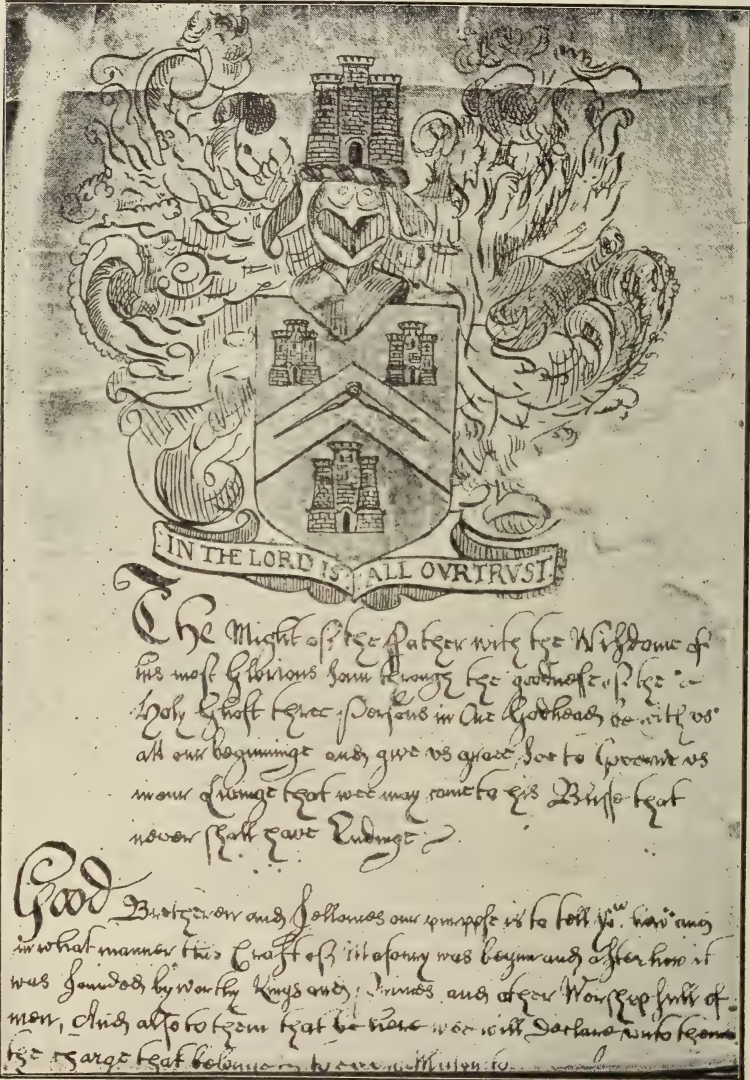 IN THE LORD IS ALL OVR TRVST
The Might of the Father with the Wisdome of
his most Glorious Sonn through the goodnesse of the
Holy Ghost three Persons in One Godhead be with us
att our beginninge and give vs grace soe to Governe vs
in our Liveinge that wee may come to his Blisse that
never shall have Endinge
Good Bretheren and Fellowes our purpose is to tell you how and
in what manner this Craft of Masonry was begun and after how it
was founded by worthy Kings and Princes and other Worshipfull
men, And also to them that be here wee will Declare unto them
the charge that belonge to